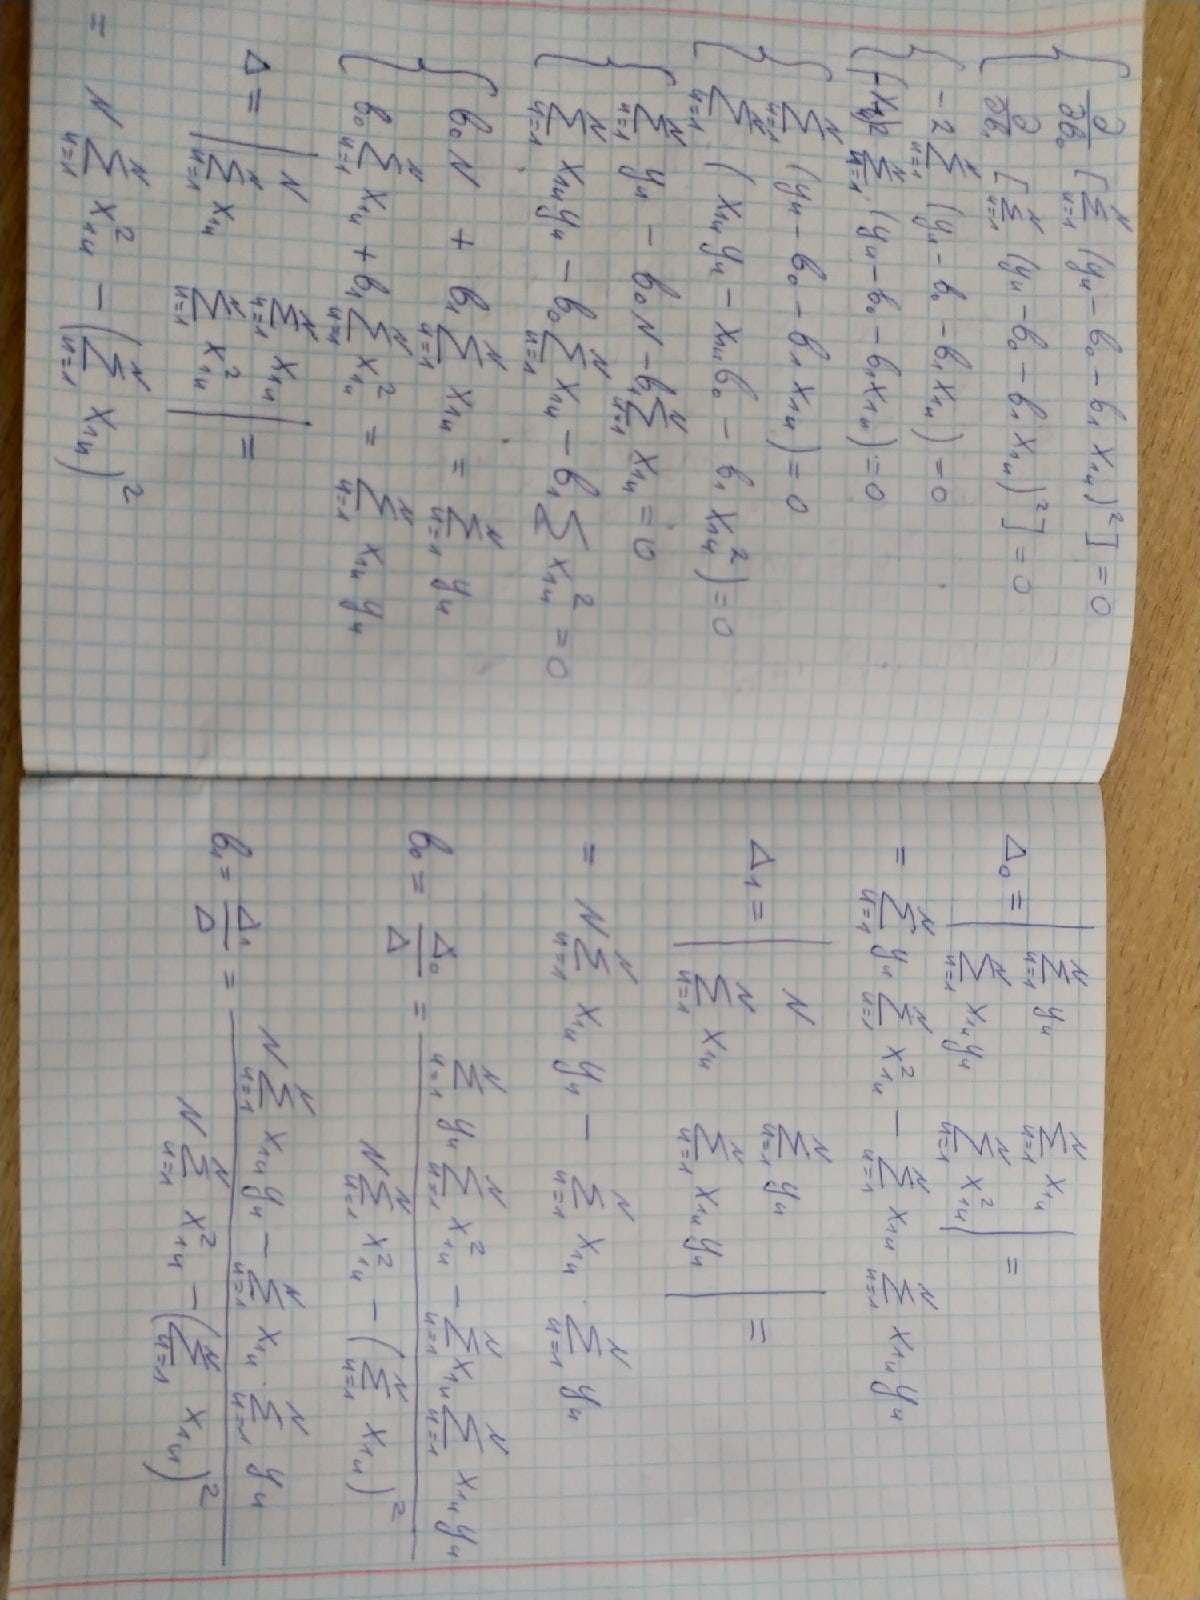 ∂/∂b₀ [∑_{u=1}^{N} (yᵤ − b₀ − b₁ x₁ᵤ)²] = 0
∂/∂b₁ [∑_{u=1}^{N} (yᵤ − b₀ − b₁ x₁ᵤ)²] = 0
−2 ∑_{u=1}^{N} (yᵤ − b₀ − b₁ x₁ᵤ) = 0
(−x₁ᵤ)2 ∑_{u=1}^{N} (yᵤ − b₀ − b₁ x₁ᵤ) = 0
∑_{u=1}^{N} (yᵤ − b₀ − b₁ x₁ᵤ) = 0
∑_{u=1}^{N} (x₁ᵤ yᵤ − x₁ᵤ b₀ − b₁ x₁ᵤ²) = 0
∑_{u=1}^{N} yᵤ − b₀ N − b₁ ∑_{u=1}^{N} x₁ᵤ = 0
∑_{u=1}^{N} x₁ᵤ yᵤ − b₀ ∑_{u=1}^{N} x₁ᵤ − b₁ ∑ x₁ᵤ² = 0
b₀ N + b₁ ∑_{u=1}^{N} x₁ᵤ = ∑_{u=1}^{N} yᵤ
b₀ ∑_{u=1}^{N} x₁ᵤ + b₁ ∑_{u=1}^{N} x₁ᵤ² = ∑_{u=1}^{N} x₁ᵤ yᵤ
Δ = | N ∑_{u=1}^{N} x₁ᵤ |
| ∑_{u=1}^{N} x₁ᵤ ∑_{u=1}^{N} x₁ᵤ² | =
= N ∑_{u=1}^{N} x₁ᵤ² − (∑_{u=1}^{N} x₁ᵤ)²
Δ₀ = | ∑_{u=1}^{N} yᵤ ∑_{u=1}^{N} x₁ᵤ |
| ∑_{u=1}^{N} x₁ᵤ yᵤ ∑_{u=1}^{N} x₁ᵤ² | =
= ∑_{u=1}^{N} yᵤ ∑_{u=1}^{N} x₁ᵤ² − ∑_{u=1}^{N} x₁ᵤ ∑_{u=1}^{N} x₁ᵤ yᵤ
Δ₁ = | N ∑_{u=1}^{N} yᵤ |
| ∑_{u=1}^{N} x₁ᵤ ∑_{u=1}^{N} x₁ᵤ yᵤ | =
= N ∑_{u=1}^{N} x₁ᵤ yᵤ − ∑_{u=1}^{N} x₁ᵤ · ∑_{u=1}^{N} yᵤ
b₀ = Δ₀/Δ = (∑_{u=1}^{N} yᵤ ∑_{u=1}^{N} x₁ᵤ² − ∑_{u=1}^{N} x₁ᵤ ∑_{u=1}^{N} x₁ᵤ yᵤ) / (N ∑_{u=1}^{N} x₁ᵤ² − (∑_{u=1}^{N} x₁ᵤ)²)
b₁ = Δ₁/Δ = (N ∑_{u=1}^{N} x₁ᵤ yᵤ − ∑_{u=1}^{N} x₁ᵤ · ∑_{u=1}^{N} yᵤ) / (N ∑_{u=1}^{N} x₁ᵤ² − (∑_{u=1}^{N} x₁ᵤ)²)